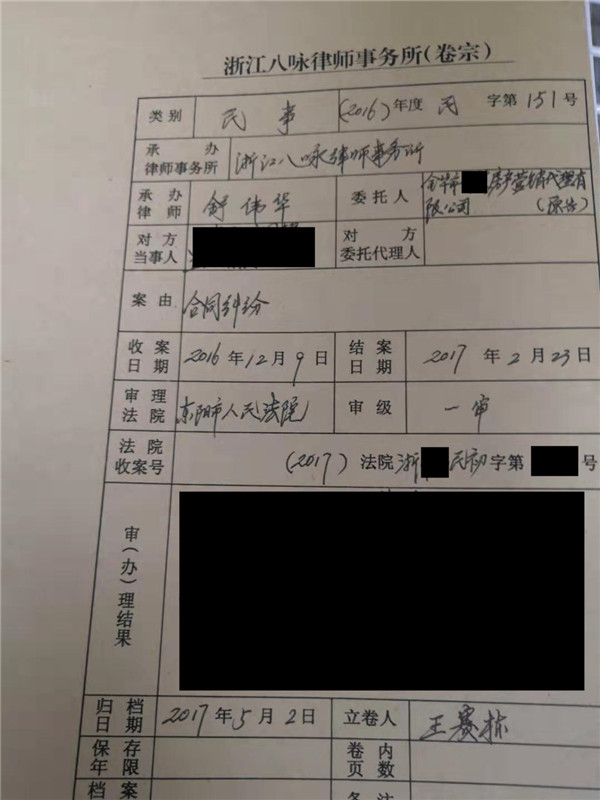 浙江八咏律师事务所(卷宗)
类别 民事 (2016)年度 民 字第 151 号
承办律师事务所 浙江八咏律师事务所
承办律师 舒伟华 委托人 金华市 房产营销代理有限公司(原告)
对方当事人 对方委托代理人
案由 合同纠纷
收案日期 2016年12月9日 结案日期 2017年2月23日
审理法院 东阳市人民法院 审级 一审
法院收案号 (2017)法院浙 民初字第 号
审(办)理结果
归档日期 2017年5月2日 立卷人 王赛栋
保存年限 卷内页数
档案 备注